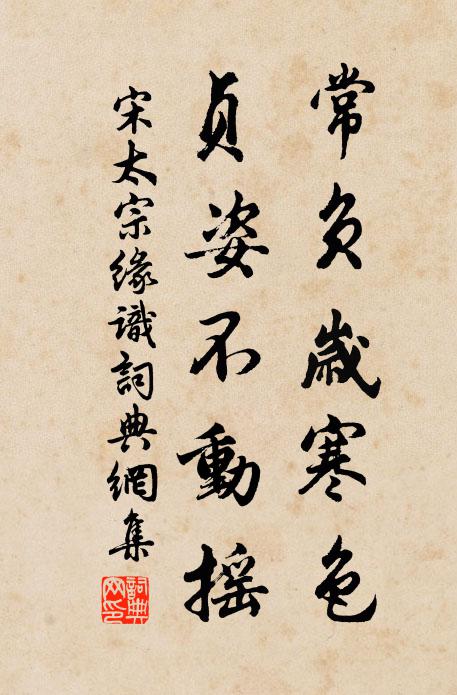 常負歲寒色
貞姿不動搖
宋太宗緣識詞典網集
詞典網印